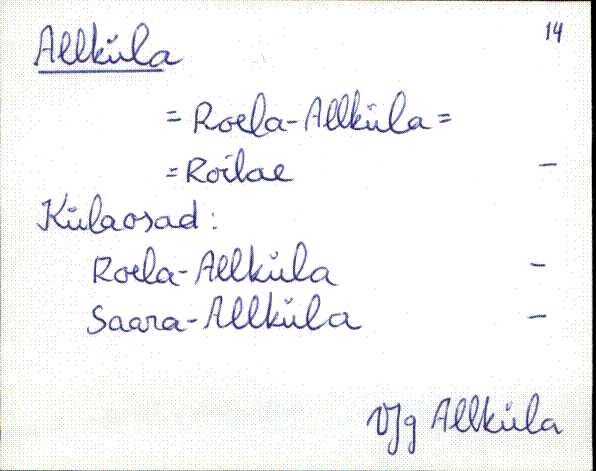 14
Allküla
= Roela-Allküla =
= Roilae –
Külaosad:
Roela-Allküla –
Saara-Allküla –
VJg Allküla